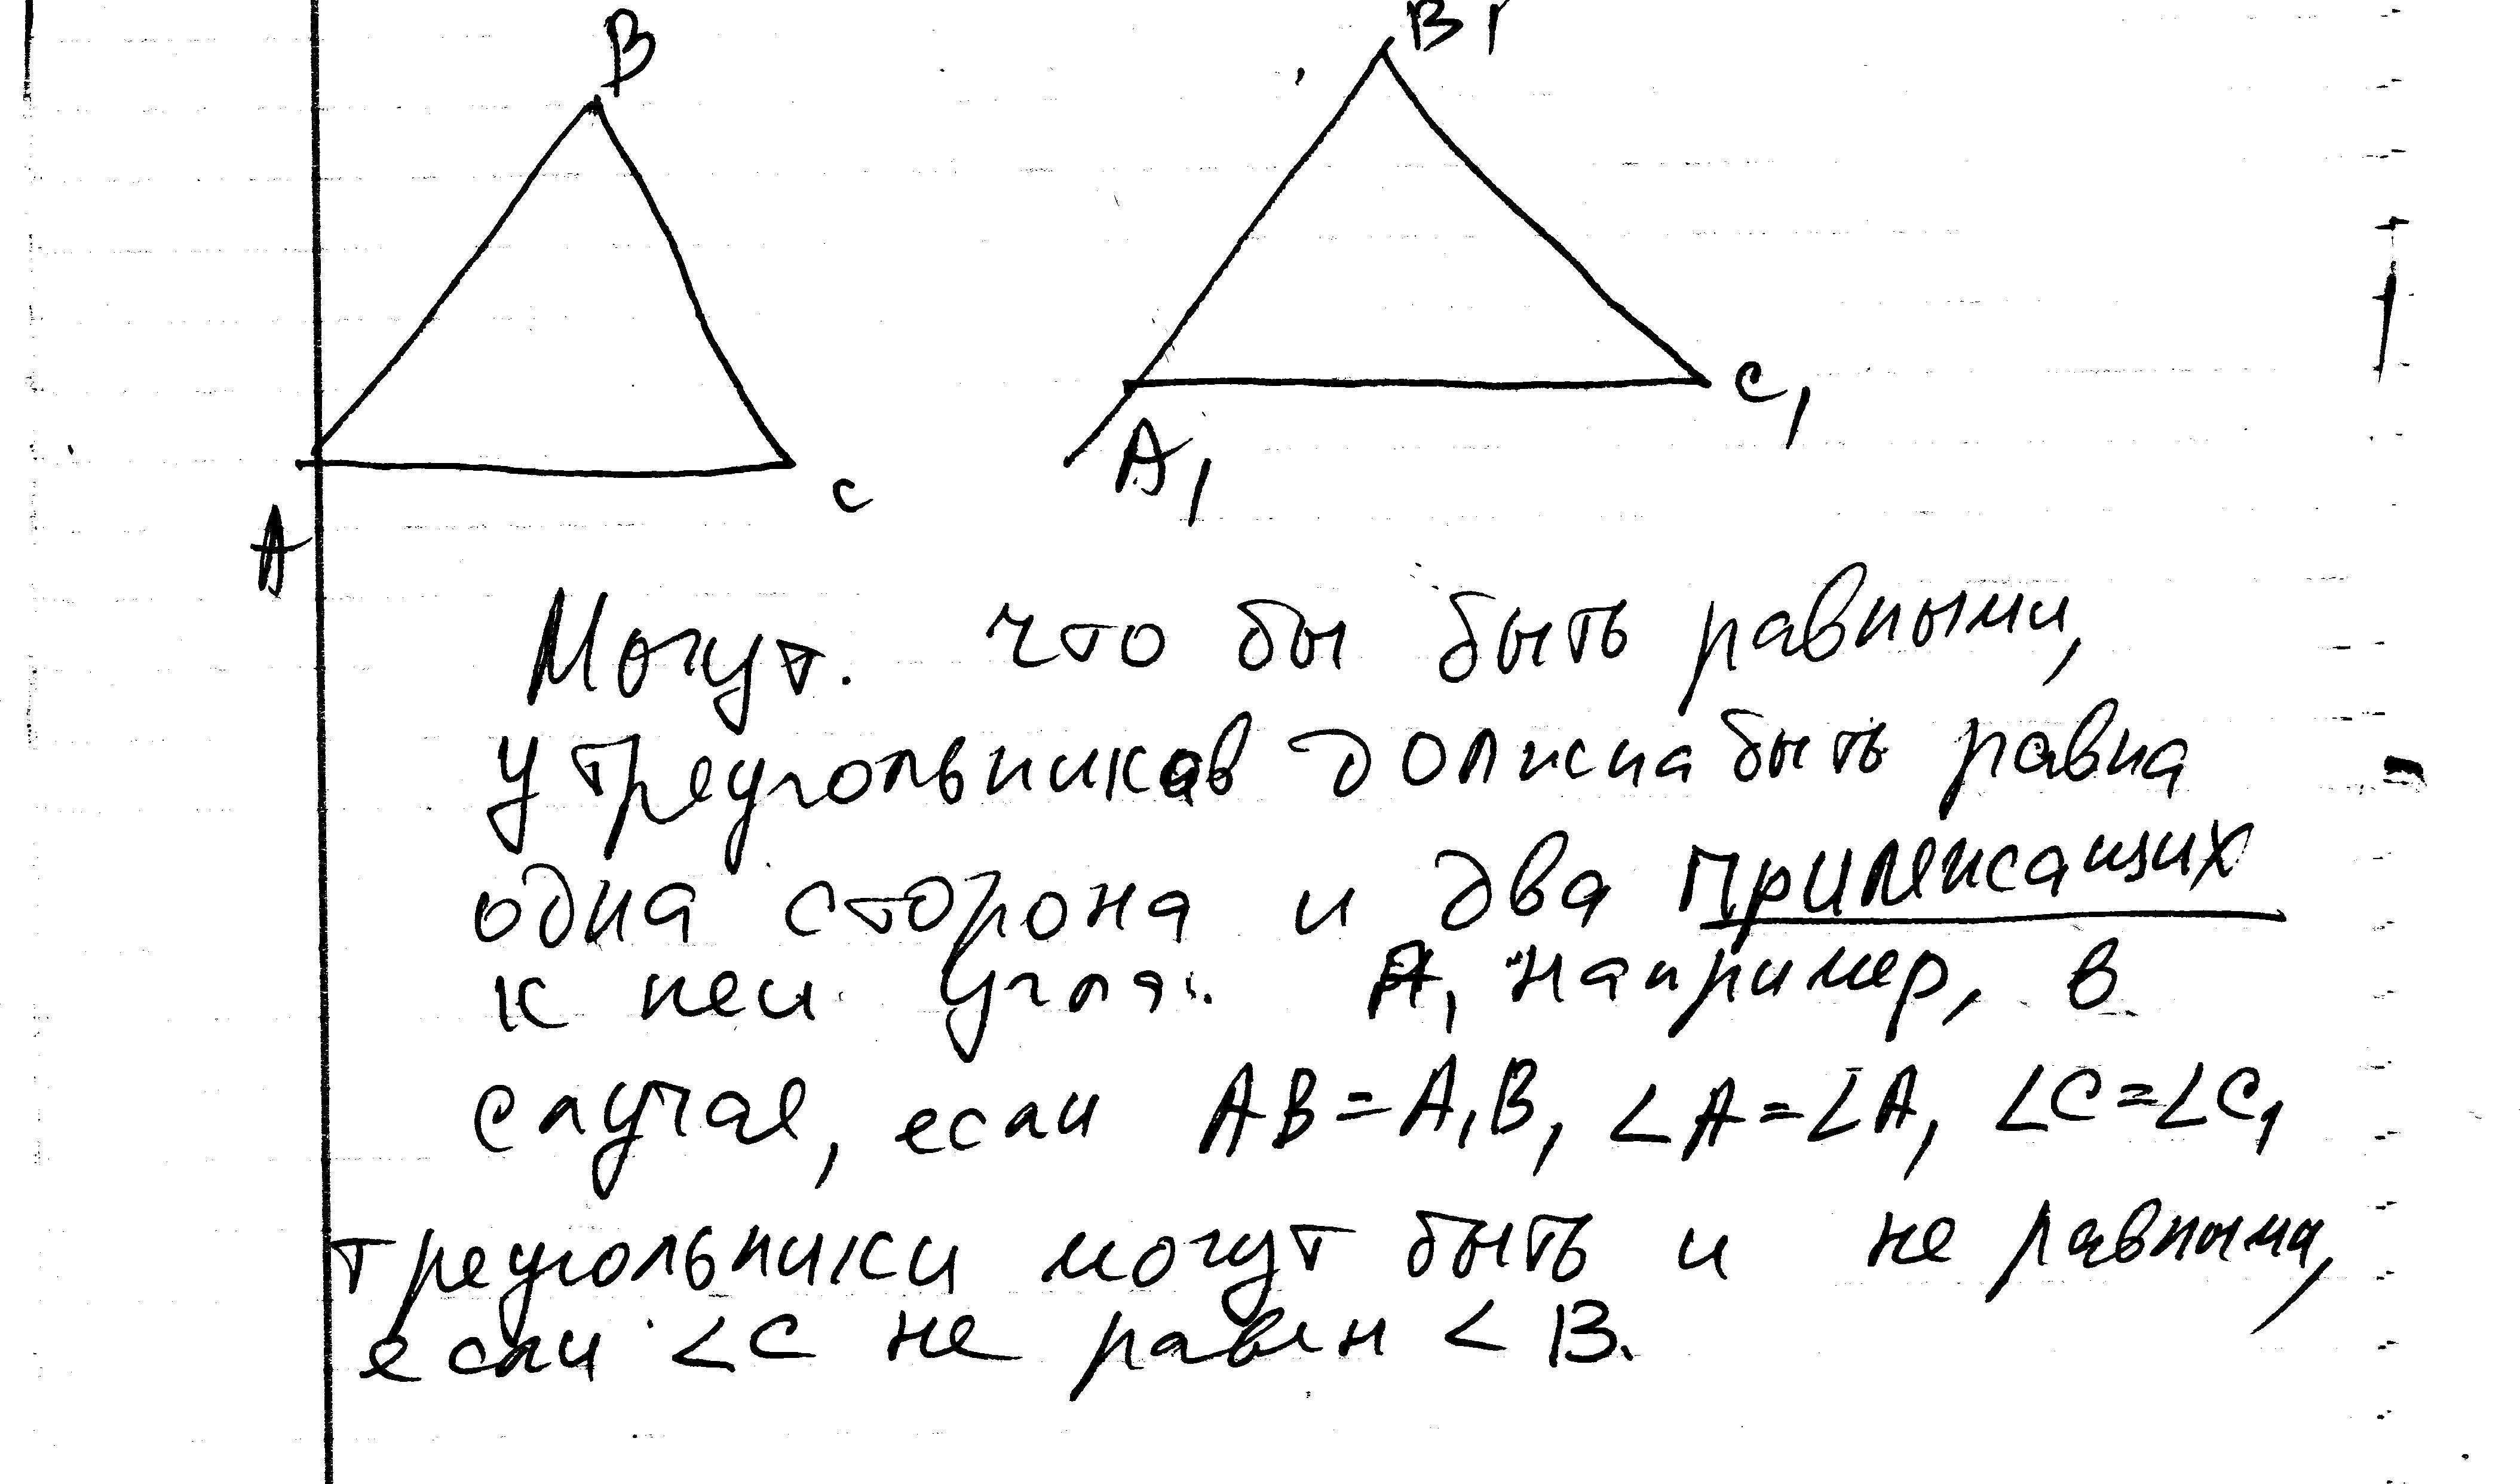 B
B1
C1
A1
C
A
Могут. что бы быть равными,
у треугольников должна быть равна
одна сторона и два прилежащих
к ней угла. А, например, в
случае, если AB=A1B1 ∠A=∠A1 ∠C=∠C1
треугольники могут быть и не равными,
если ∠C не равен ∠B.